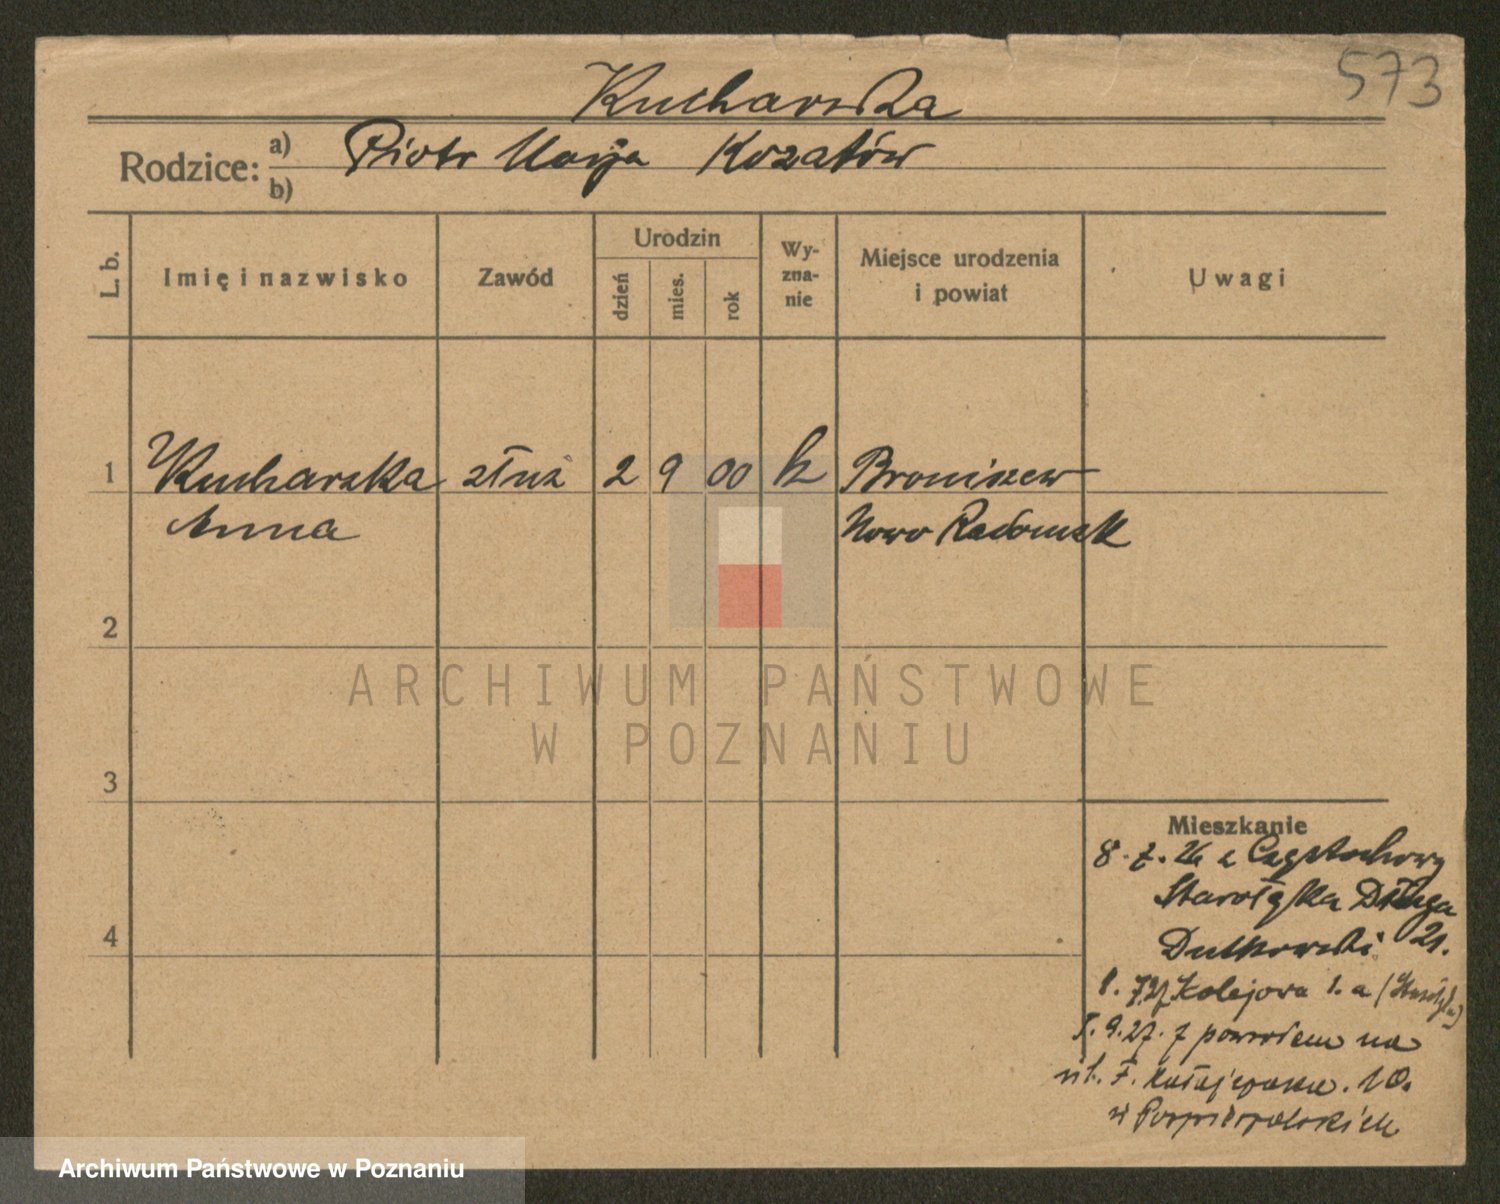 573
Kucharska
Rodzice: a) Piotr Marja Kozatów
b)
L. b.
Imię i nazwisko
Zawód
Urodzin
dzień
mies.
rok
Wy-
zna-
nie
Miejsce urodzenia
i powiat
Uwagi
1 Kucharska służ 2 9 00 k Broniszew
Anna Nowo Radomsk
2
3
4
Mieszkanie
8. 7. 26 z Częstochowy
Starołęka Długa
Dutkowski 21.
Kolejowa 1. a
9. 27. z powrotem na
10.
ARCHIWUM PAŃSTWOWE
W POZNANIU
Archiwum Państwowe w Poznaniu